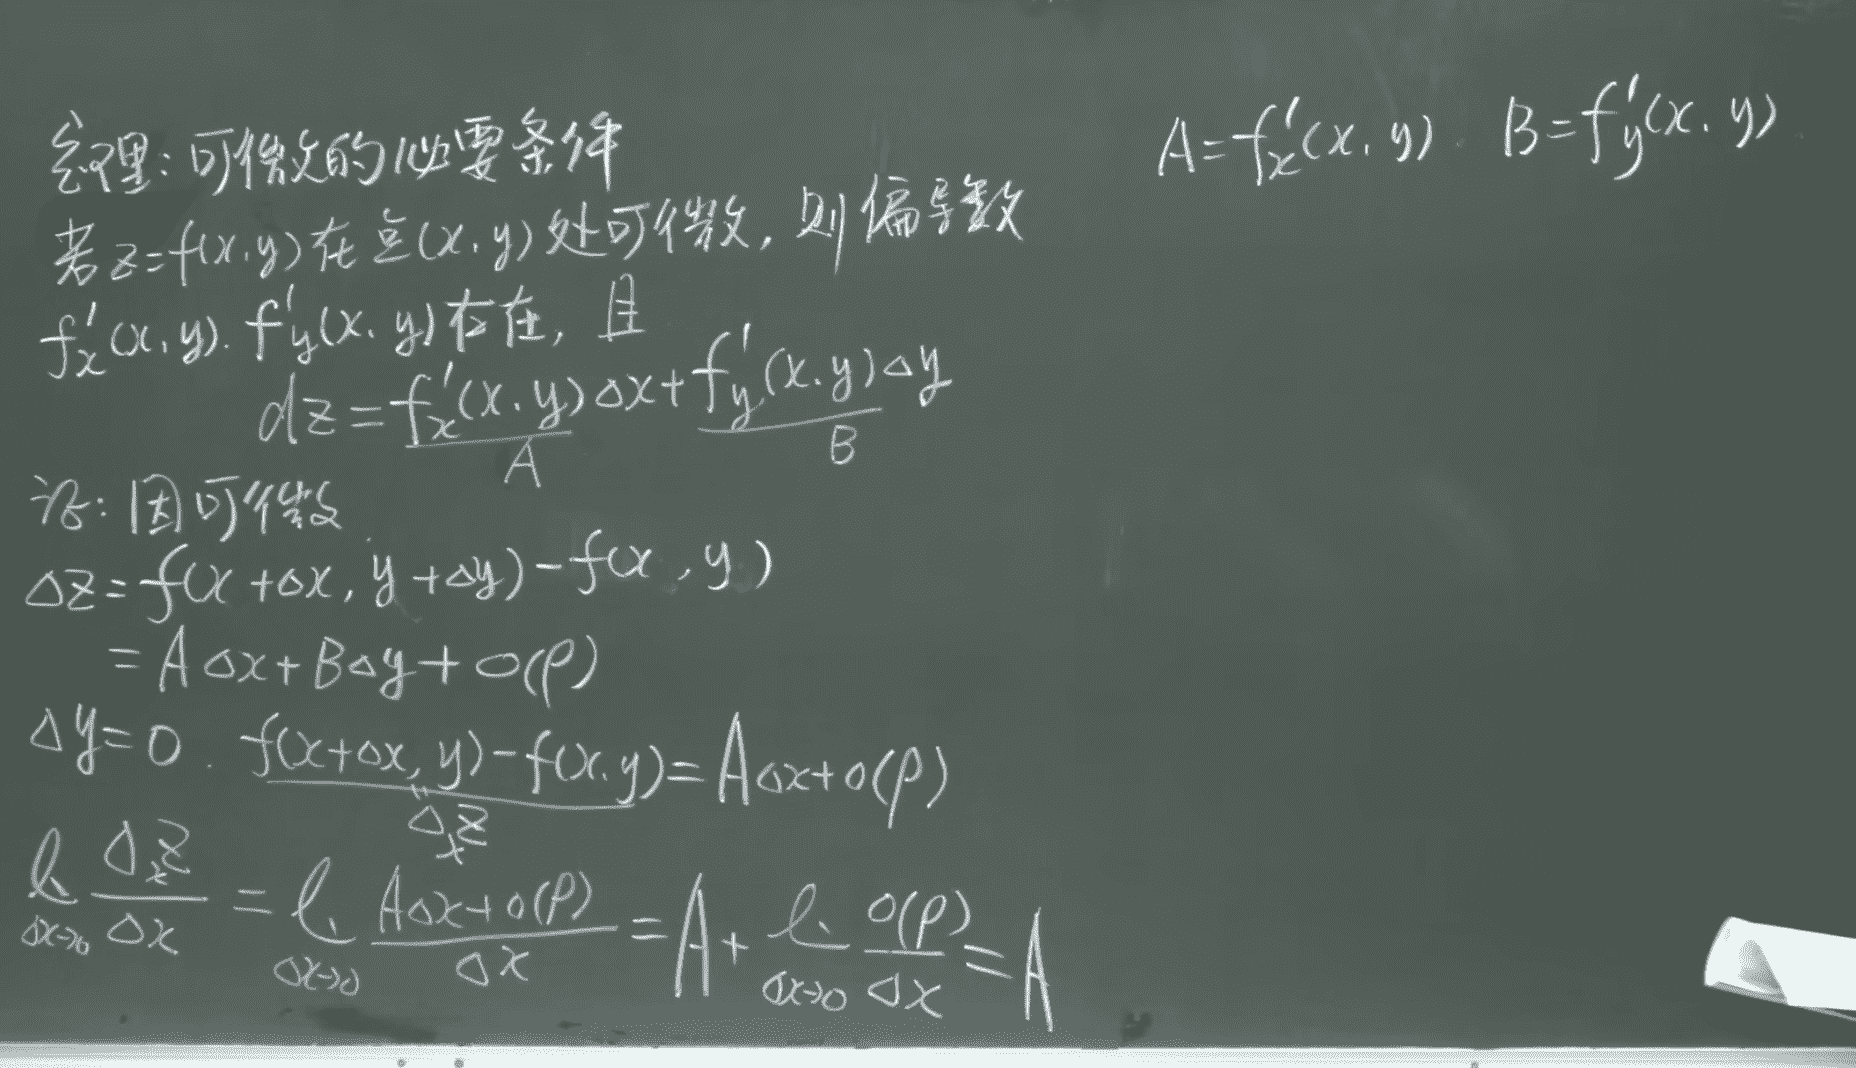 定理:可微的必要条件
若z=f(x,y)在点(x,y)处可微,则偏导数
f'x(x,y).f'y(x,y)存在,且
dz=f'x(x,y)Δx+f'y(x,y)Δy
A B
证:因可微
Δz=f(x+Δx,y+Δy)-f(x,y)
=AΔx+BΔy+o(ρ)
Δy=0. f(x+Δx,y)-f(x,y)=AΔx+o(ρ)
"
Δxz
l Δxz/Δx = l AΔx+o(ρ)/Δx = A + l o(ρ)/Δx = A
Δx→0 Δx→0 Δx→0
A=f'x(x,y). B=f'y(x,y).